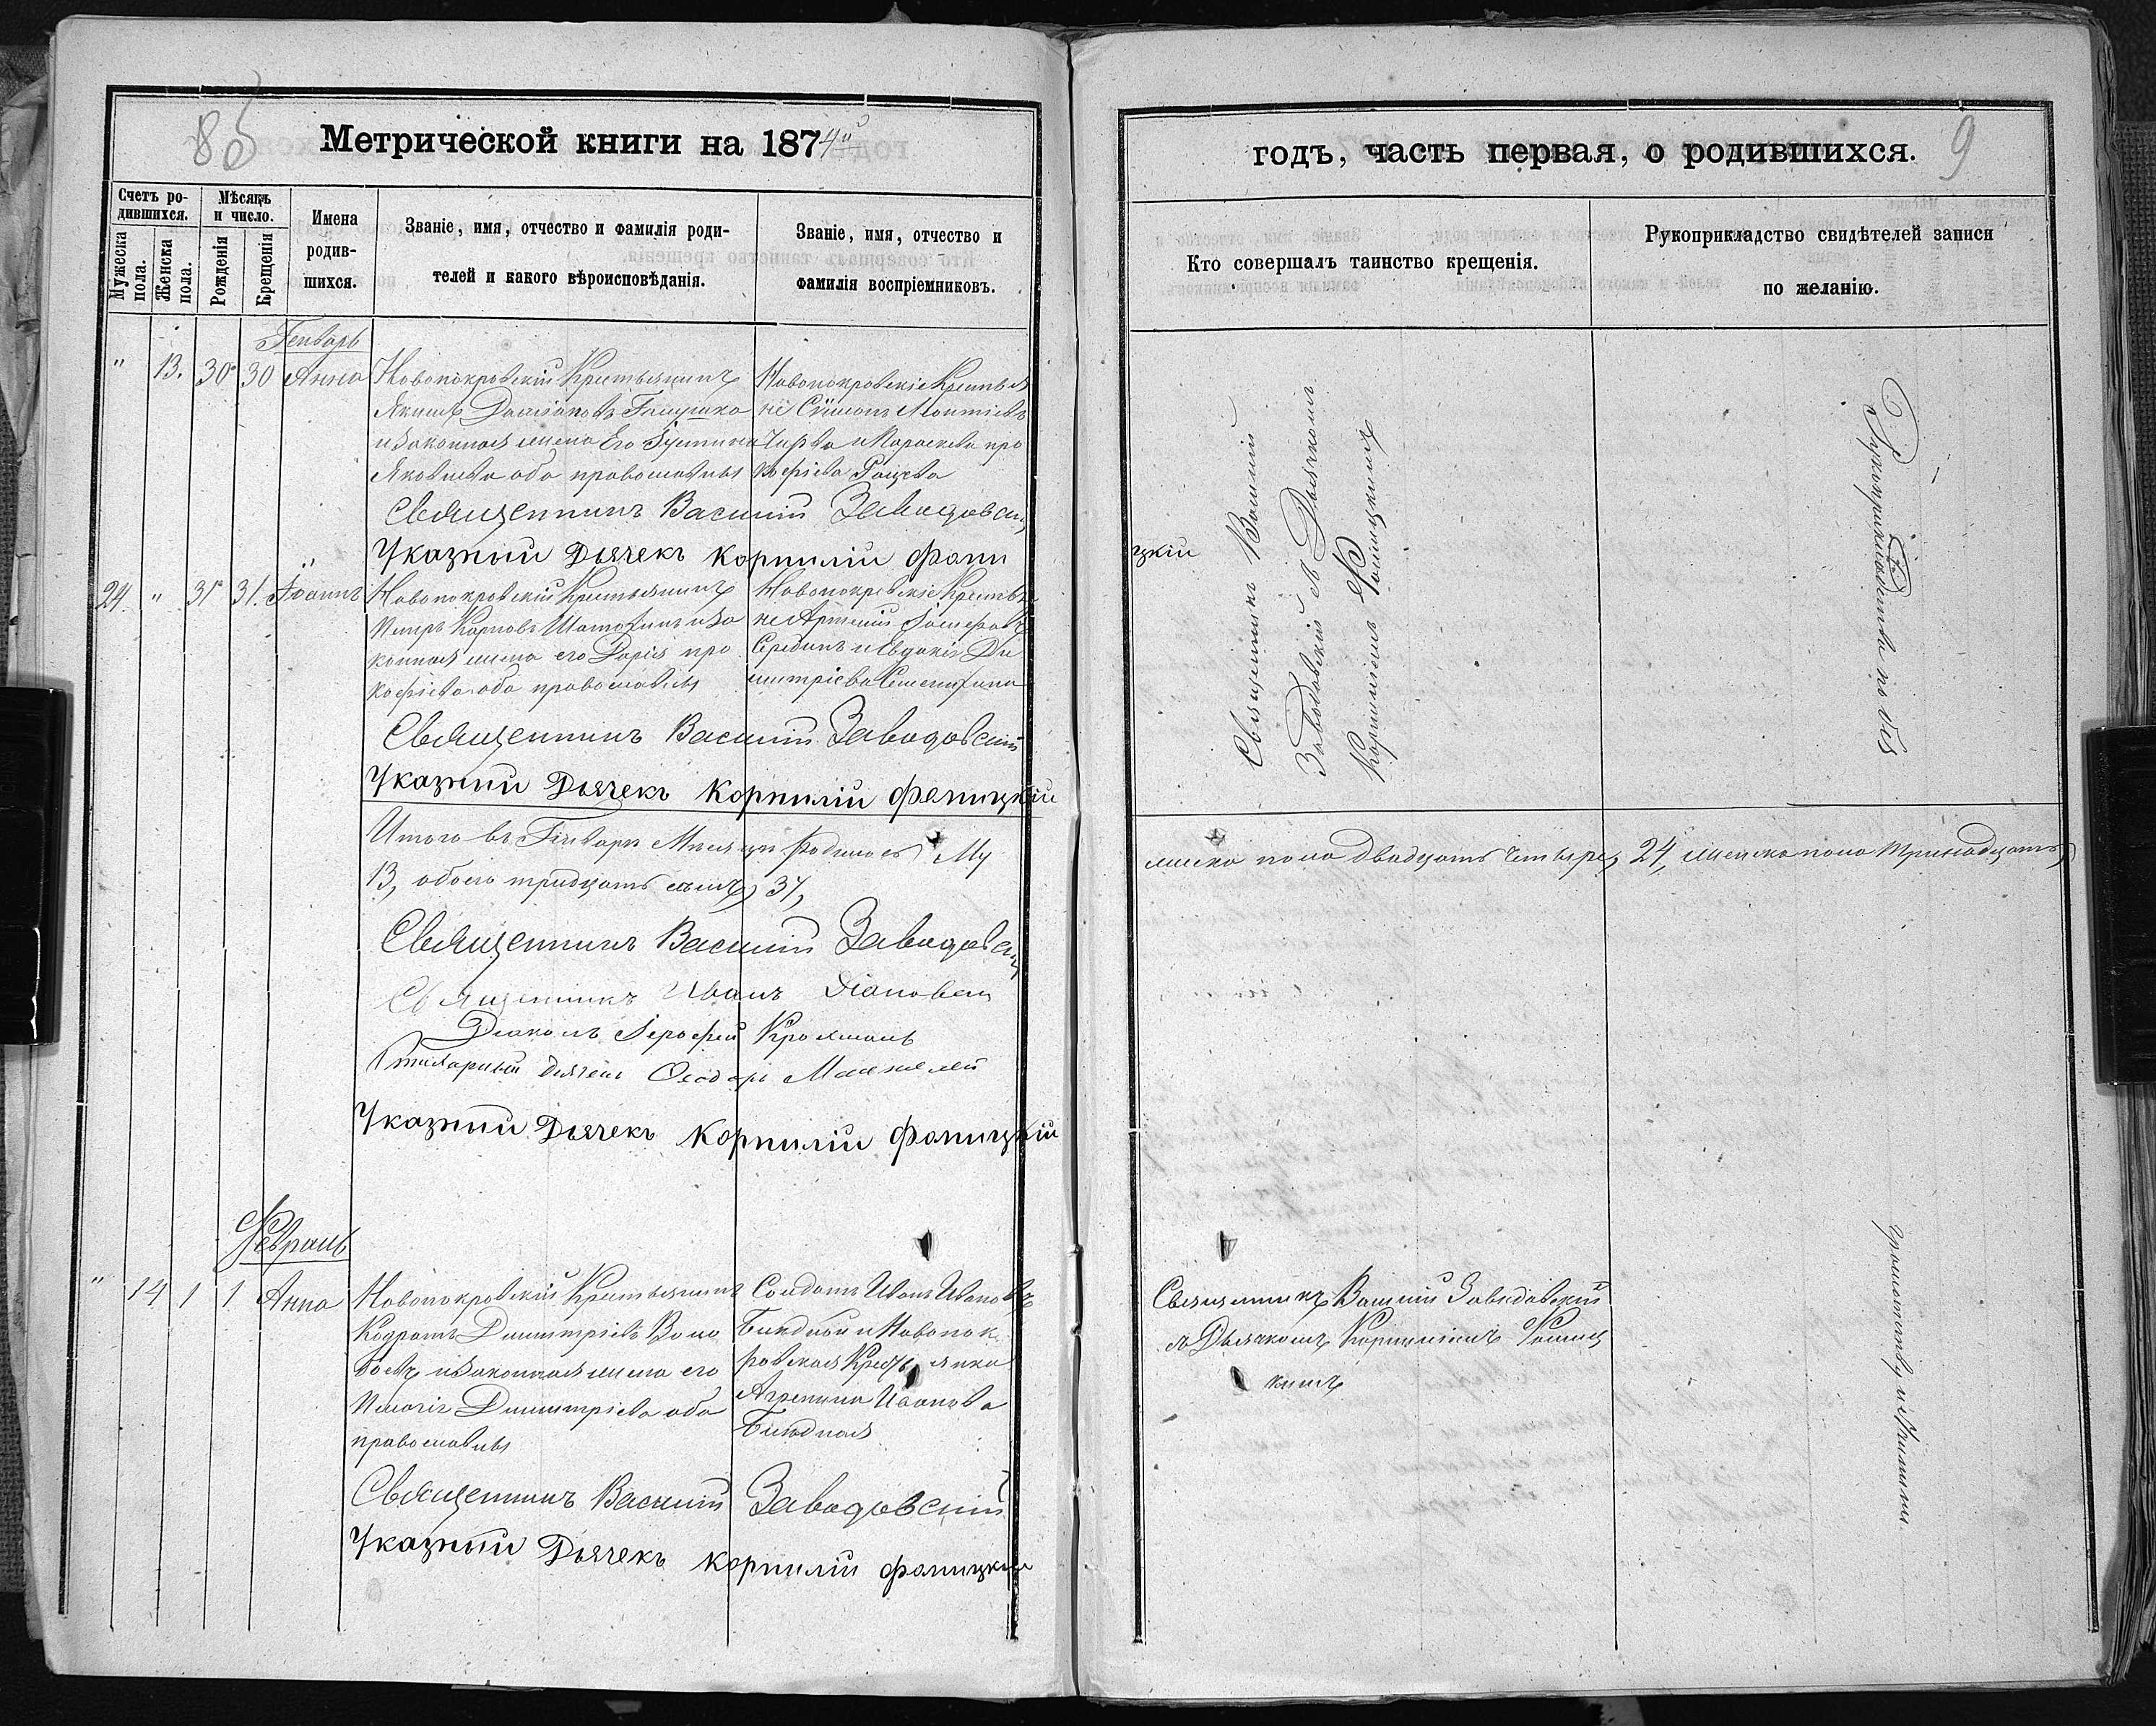 8 об
Метрической книги на 1874й
Счетъ ро-
дившихся.
Мужеска
пола.
Женска
пола.
Мѣсяцъ
и число.
Рожденія
Крещенія
Имена
родив-
шихся.
Званіе, имя, отчество и фамилія роди-
телей и какого вѣроисповѣданія.
Званіе, имя, отчество и
фамилія воспріемниковъ.
Генварь
" 13. 30 30 Анна
Новопокровскій Крестьянинъ
Якимъ
и Законная жена Его Іустина
Яковлева оба православны
Новопокровскіе Крестья
не Симонъ
и Параскева Про
кофіева
Священникъ Василій Заводовск
Указный Дьячекъ Корнилій Фани
24 " 31 31. Іоаннъ
Новопокровскій Крестьянинъ
Петръ Карповъ и За
конная жена его Дарія Про
кофіева оба православны
Новопокровскіе Крестья
не Артемій
Середина и Евдокія Ди
митріева
Священникъ Василій Заводовскій
Указный Дьячекъ Корнилій Фаницкій
Итого въ Генварѣ Месяцѣ Родилось Му
13, обоего тридцать семь, 37,
Священникъ Василій Заводовск
Священникъ Иванъ
Діаконъ Іерофей
дьячекъ Феодоръ
Указный Дьячекъ Корнилій Фаницкій
Февраль
" 14 1 1 Анна
Новопокровскій Крестьянинъ
Кодратъ Димитріевъ Воло
боевъ и Законная жена его
Пелагія Димитріева оба
православны
Солдатъ Иванъ Ивановъ
Бѣдный и Новопок
ровская Крестьянка
Агрепина Иванова
Бѣдная
Священникъ Василій Заводовскій
Указный Дьячекъ Корнилій Фаницкій
годъ, часть первая, о родившихся.
9
Кто совершалъ таинство крещенія.
Рукоприкладство свидѣтелей записи
по желанію.
цкій
Священникъ Василій
Заводовскій съ Дьячкомъ
Корниліемъ Фаницкимъ
Рукоприкладств по без
жеска пола двадцать четыре, 24, женска пола тринадцать,
Священникъ Василій Заводовскій
съ Дьячкомъ Корниліемъ Фаниц
кимъ
грамотству не